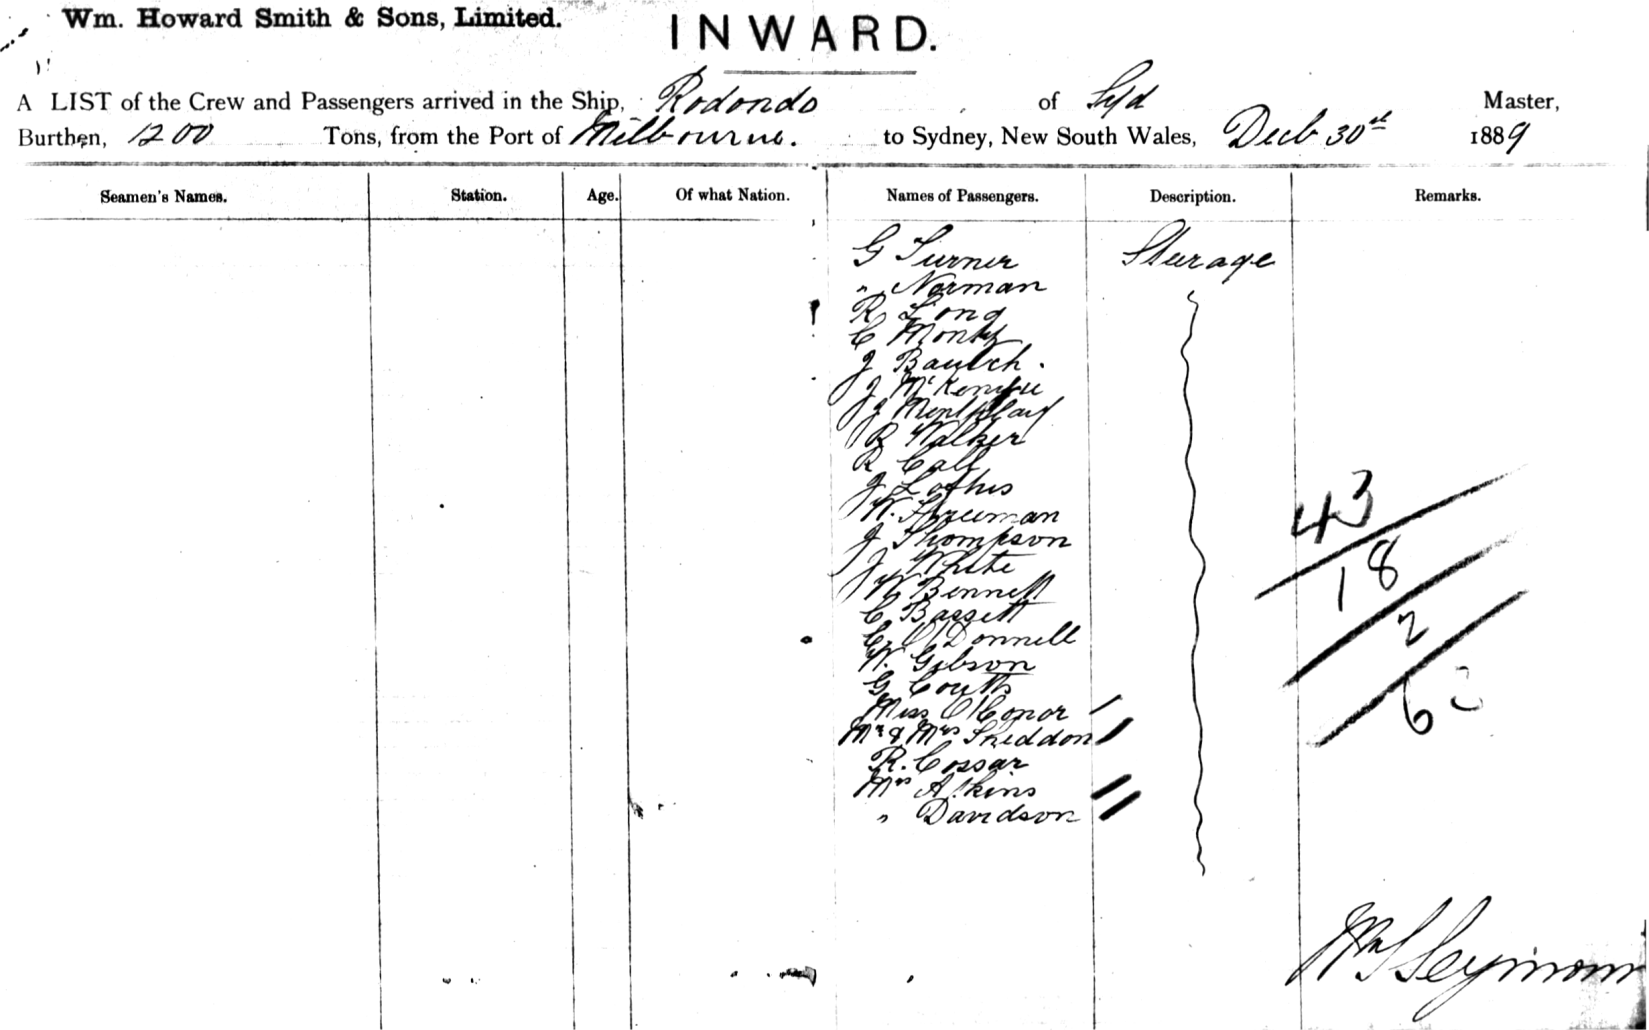 Wm. Howard Smith & Sons, Limited.
INWARD.
A LIST of the Crew and Passengers arrived in the Ship, Rodondo of Syd Master,
Burthen, 1200 Tons, from the Port of Melbourne. to Sydney, New South Wales, Decb 30th 1889
Seamen's Names. Station. Age. Of what Nation. Names of Passengers. Description. Remarks.
G Turner Steerage
" Norman
R Long
C
J
J McKenzie
J
R Walker
R Call
J
W. Freeman
J Thompson
J White
W Bennett
C Bassett
C. O'Donnell
W. Gibson
G Coutts
Miss O'Conor
Mr & Mrs Sheddon
R. Cossar
Mrs Atkins
" Davidson
43
18
2
63
Wm S Seymour